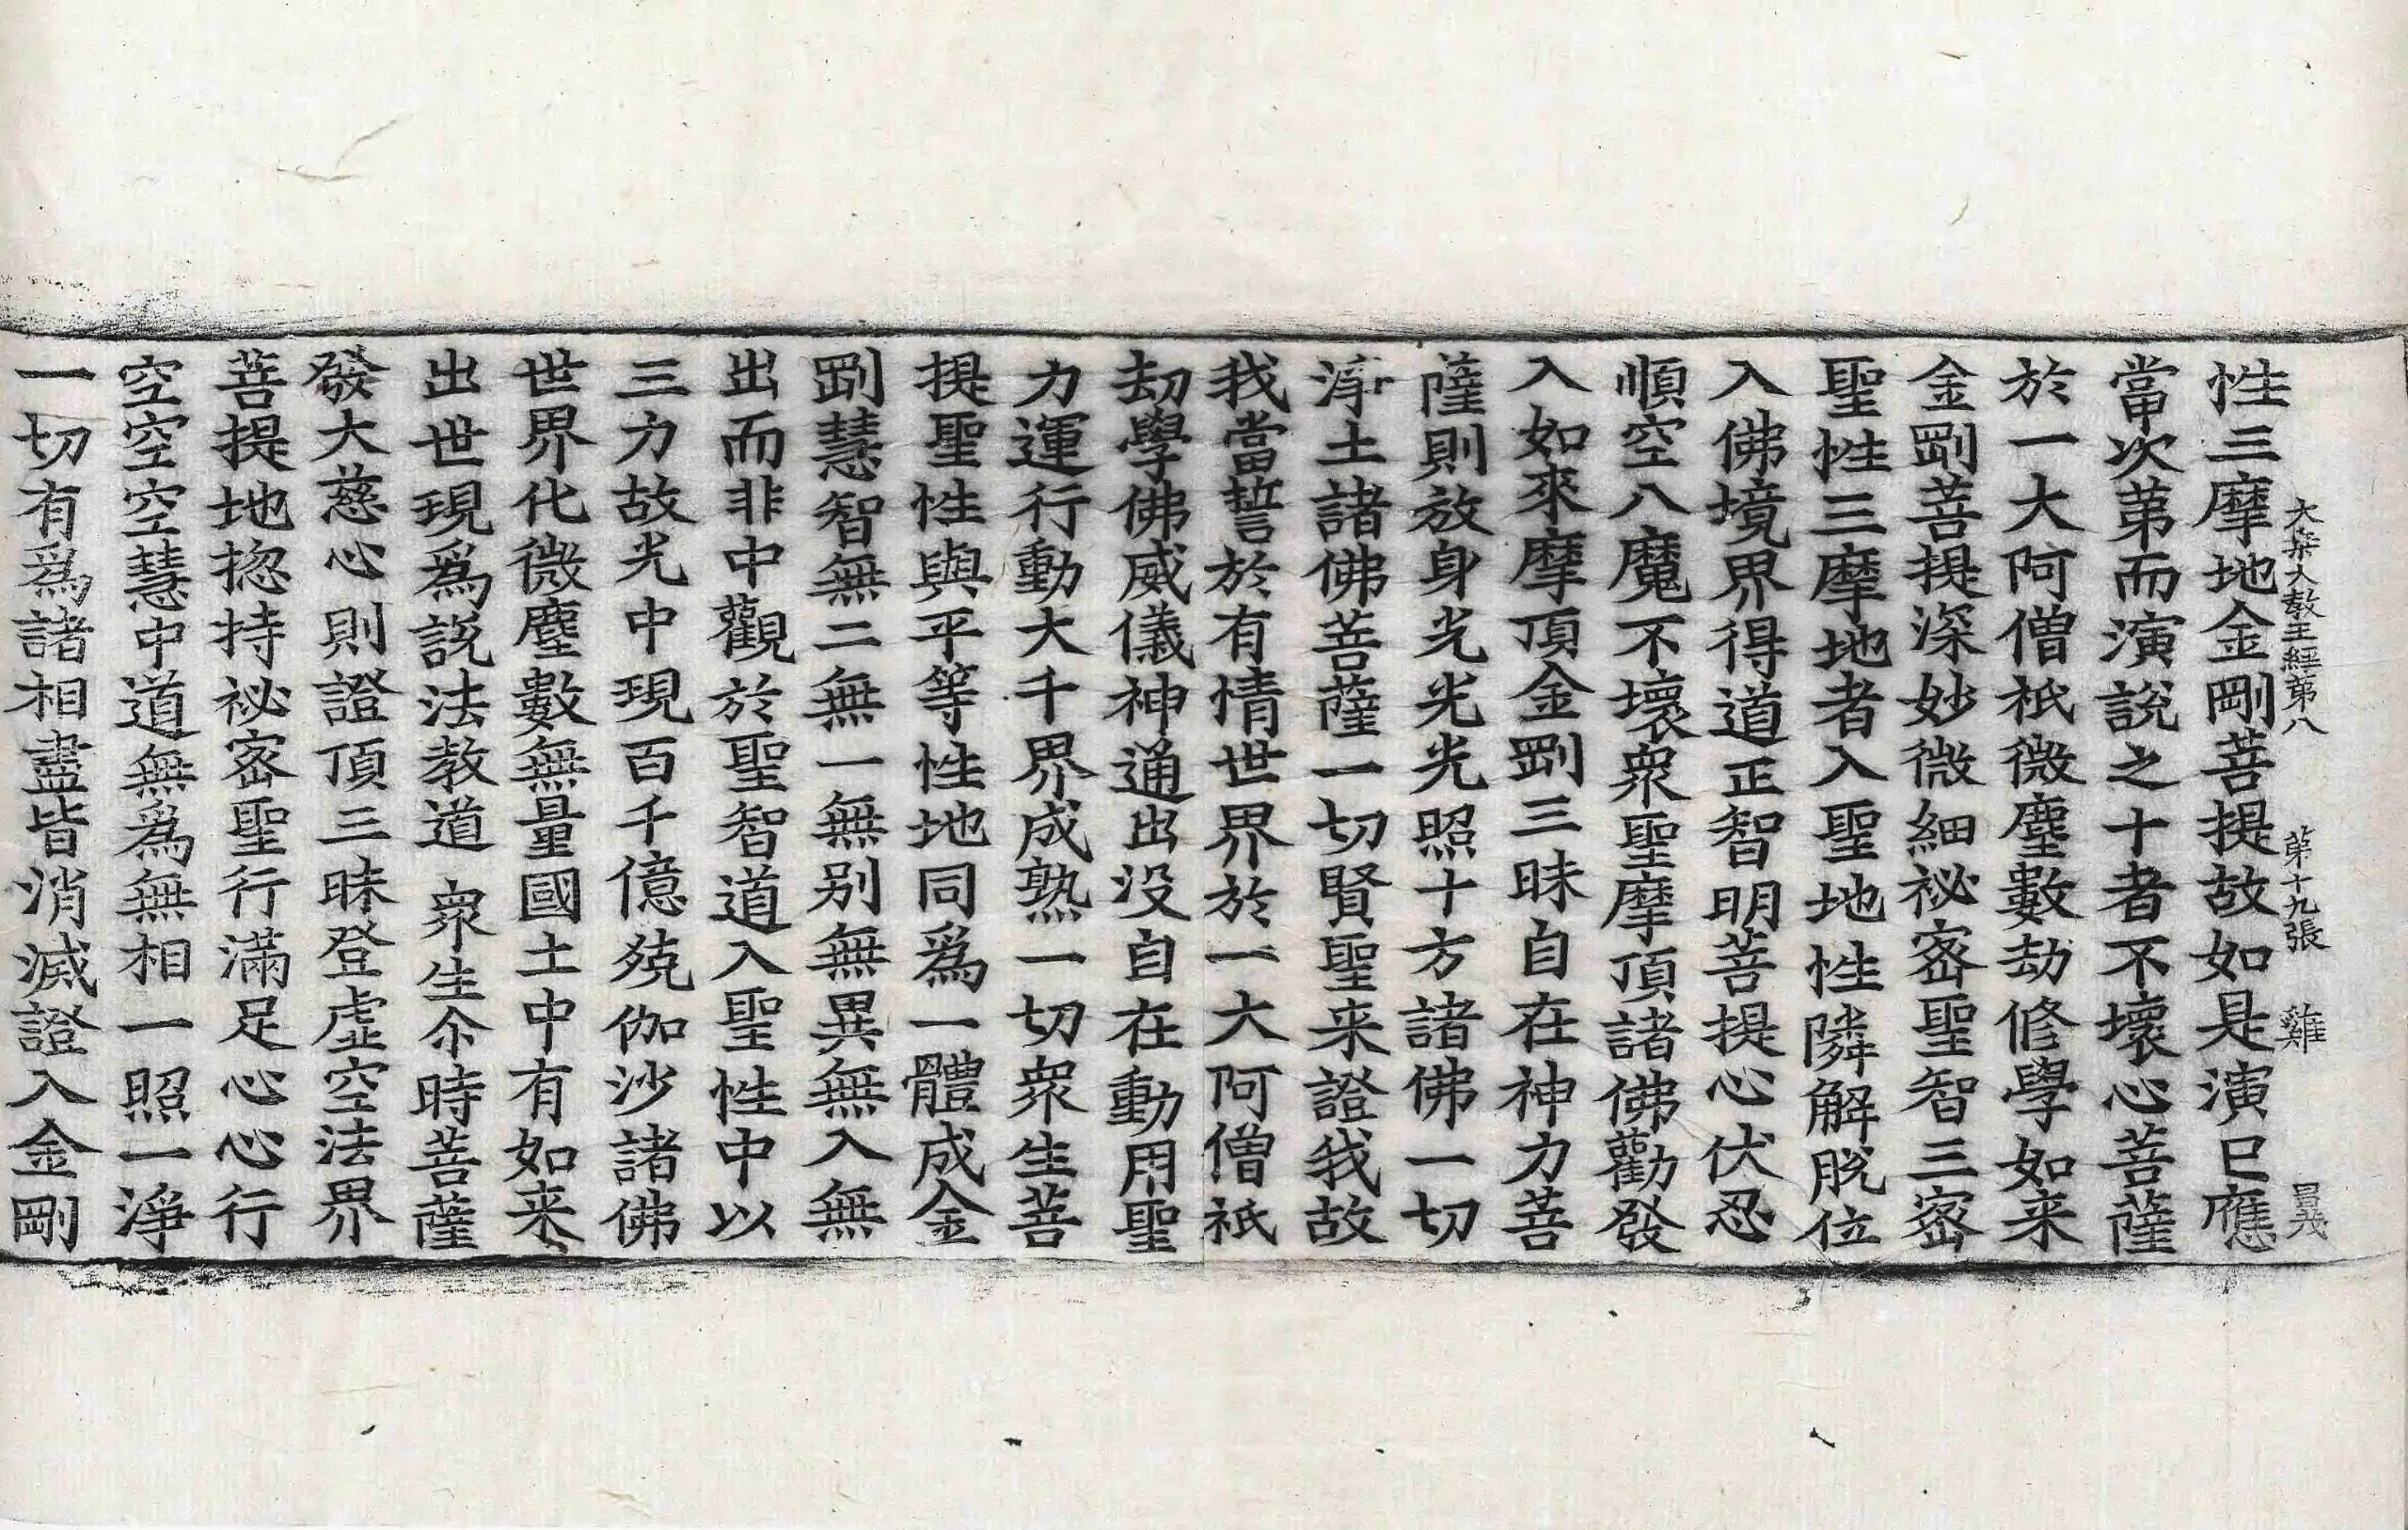 大乘大教王經第八 第十九張 雞
性三摩地金剛菩提故如是演已應
當次第而演說之十者不壞心菩薩
於一大阿僧祇微塵數劫修學如来
金剛菩提深妙微細祕密聖智三密
聖性三摩地者入聖地性隣解脫位
入佛境界得道正智明菩提心伏忍
順空八魔不壞衆聖摩頂諸佛勸發
入如來摩頂金剛三昧自在神力菩
薩則放身光光光照十方諸佛一切
淨土諸佛菩薩一切賢聖来證我故
我當誓於有情世界於一大阿僧祇
劫學佛威儀神通出没自在動用聖
力運行動大千界成熟一切衆生菩
提聖性與平等性地同爲一體成金
剛慧智無二無一無别無異無入無
出而非中觀於聖智道入聖性中以
三力故光中現百千億殑伽沙諸佛
世界化微塵數無量國土中有如来
出世現爲說法教道衆生尒時菩薩
發大慈心則證頂三昧登虛空法界
菩提地揔持祕密聖行滿足心心行
空空空慧中道無爲無相一照一淨
一切有爲諸相盡皆消滅證入金剛